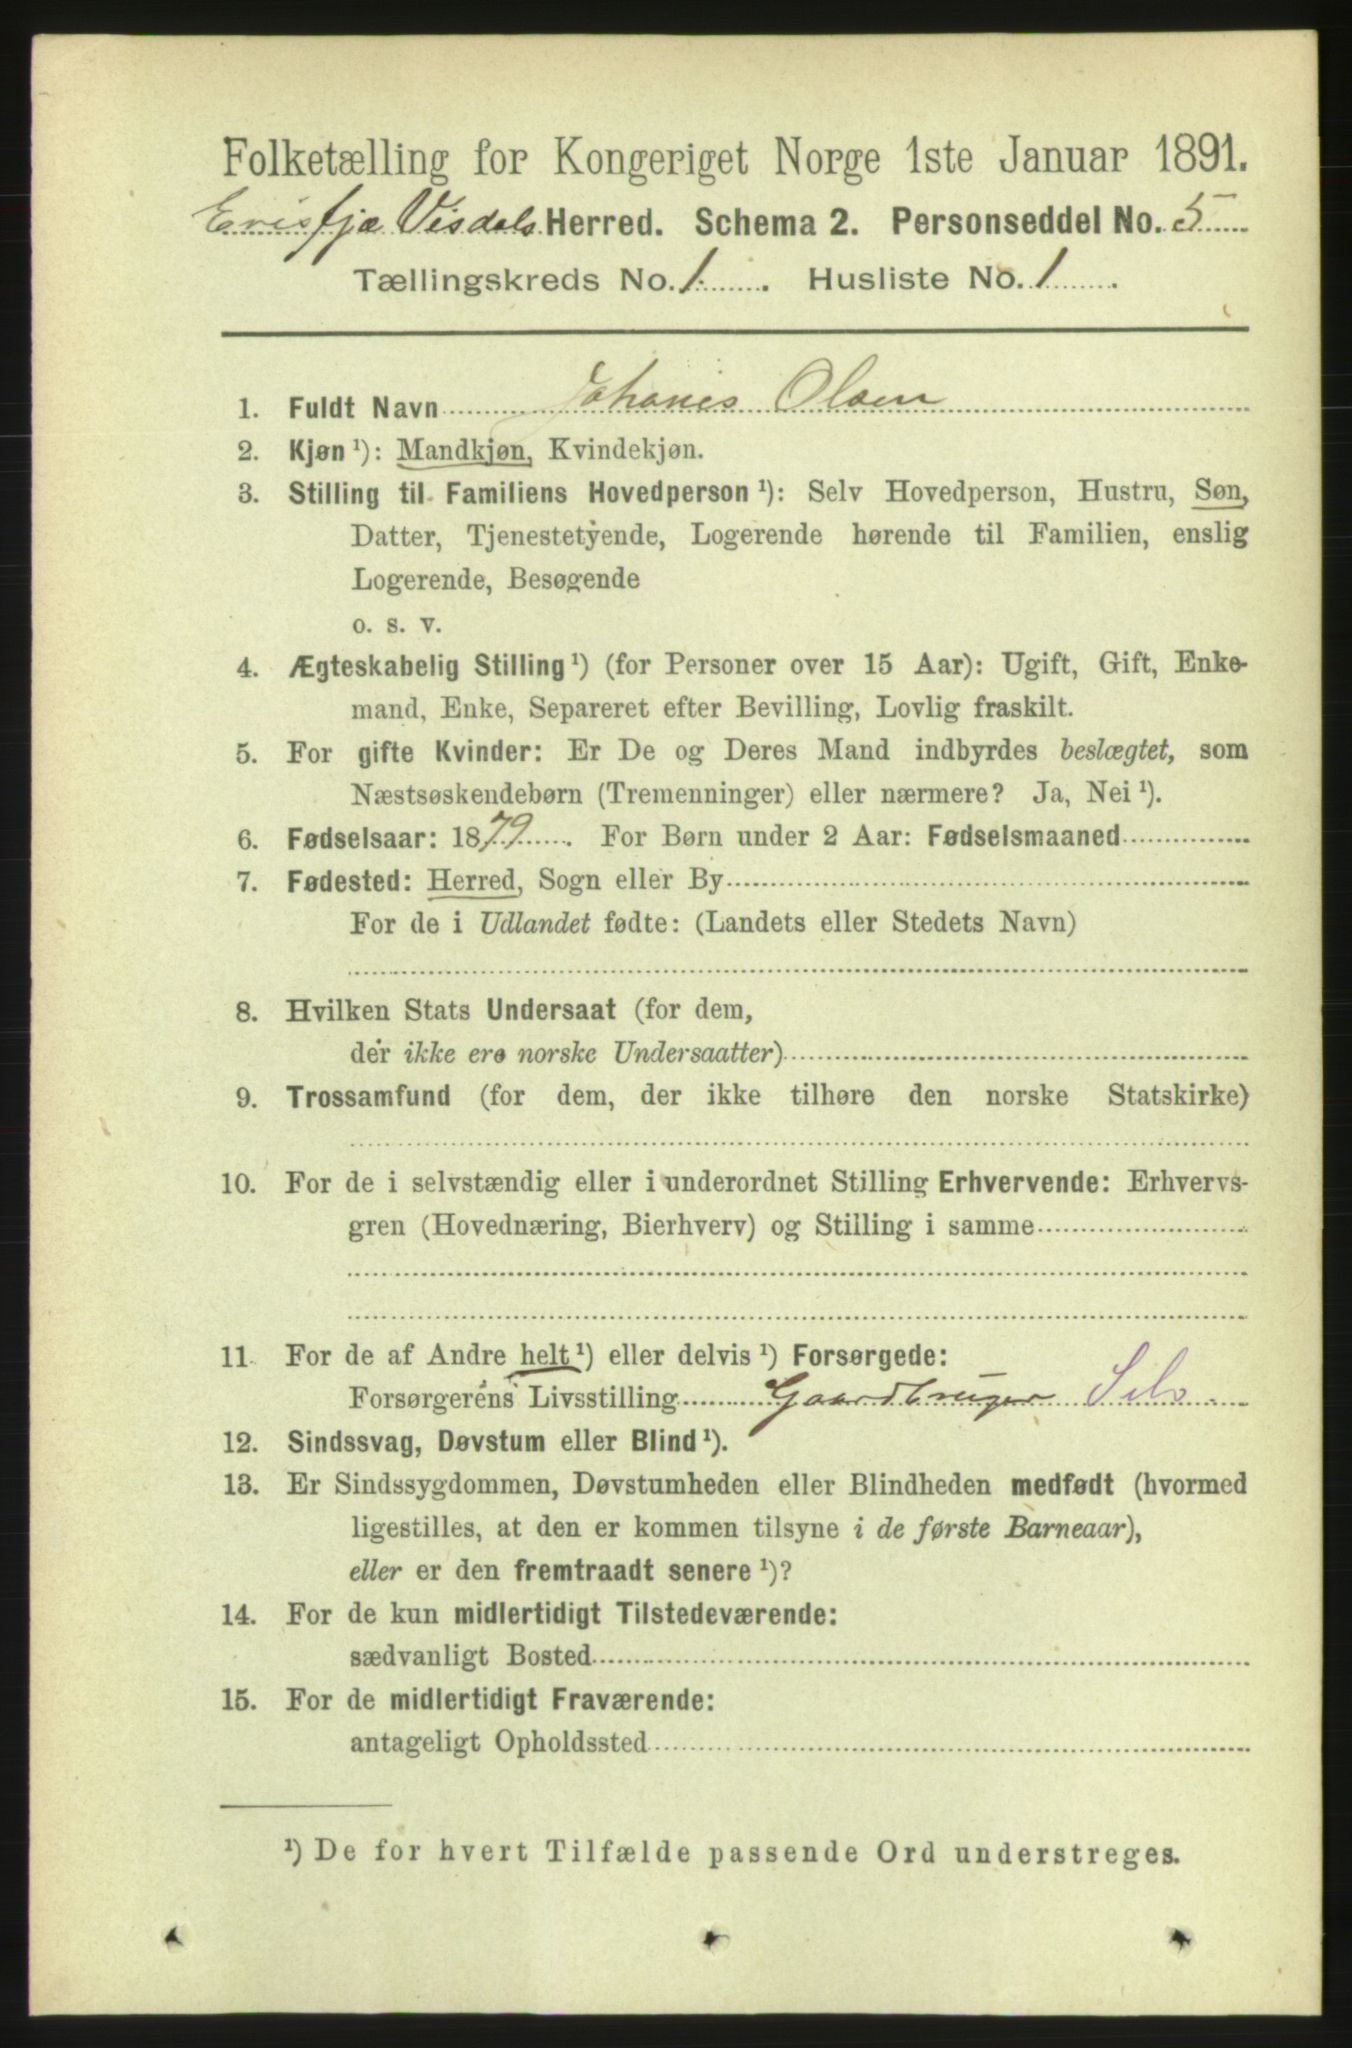 Folketælling for Kongeriget Norge 1ste Januar 1891.
Erisfjo Visdals Herred. Schema 2. Personseddel No. 5
Tællingskreds No. 1. Husliste No. 1.
1. Fuldt Navn Johanes Olsen
2. Kjøn ¹): Mandkjøn, Kvindekjøn.
3. Stilling til Familiens Hovedperson ¹): Selv Hovedperson, Hustru, Søn,
Datter, Tjenestetyende, Logerende hørende til Familien, enslig
Logerende, Besøgende
o. s. v.
4. Ægteskabelig Stilling ¹) (for Personer over 15 Aar): Ugift, Gift, Enke-
mand, Enke, Separeret efter Bevilling, Lovlig fraskilt.
5. For gifte Kvinder: Er De og Deres Mand indbyrdes beslægtet, som
Næstsøskendebørn (Tremenninger) eller nærmere? Ja, Nei ¹).
6. Fødselsaar: 1879. For Børn under 2 Aar: Fødselsmaaned
7. Fødested: Herred, Sogn eller By
For de i Udlandet fødte: (Landets eller Stedets Navn)
8. Hvilken Stats Undersaat (for dem,
der ikke ere norske Undersaatter)
9. Trossamfund (for dem, der ikke tilhøre den norske Statskirke)
10. For de i selvstændig eller i underordnet Stilling Erhvervende: Erhvervs-
gren (Hovednæring, Bierhverv) og Stilling i samme
11. For de af Andre helt ¹) eller delvis ¹) Forsørgede:
Forsørgerens Livsstilling Gaardbruger Selv.
12. Sindssvag, Døvstum eller Blind ¹).
13. Er Sindssygdommen, Døvstumheden eller Blindheden medfødt (hvormed
ligestilles, at den er kommen tilsyne i de første Barneaar),
eller er den fremtraadt senere ¹)?
14. For de kun midlertidigt Tilstedeværende:
sædvanligt Bosted
15. For de midlertidigt Fraværende:
antageligt Opholdssted
¹) De for hvert Tilfælde passende Ord understreges.